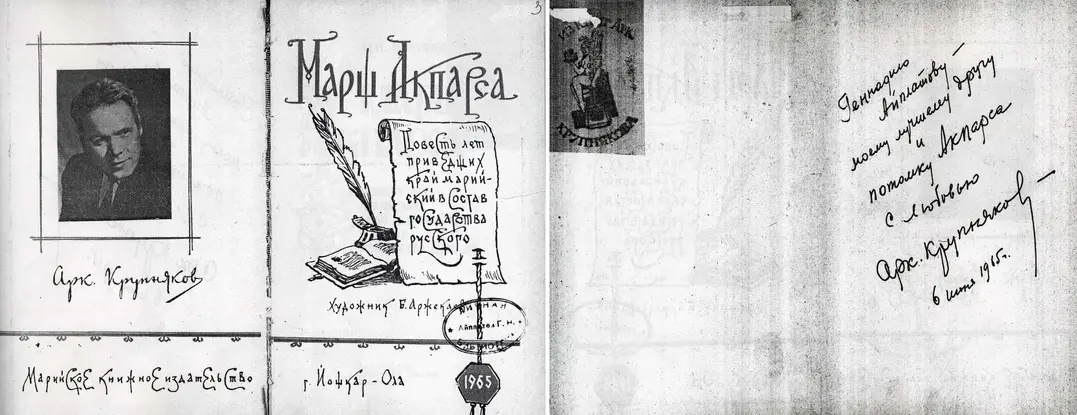 Арк. Крупняков
Марийское книжное издательство
3
Марш Акпарса
Повесть лет
приведших
край марий-
ский в состав
государства
русского
Художник Б. Аржекаев
Айплатов Г. Н.
г. Йошкар-Ола
1965
ИЗ КНИГ Арк.
КРУПНЯКОВА
Геннадию
Айплатову –
моему лучшему другу
и
потомку Акпарса
с любовью
Арк. Крупняков
6 июня 1965г.